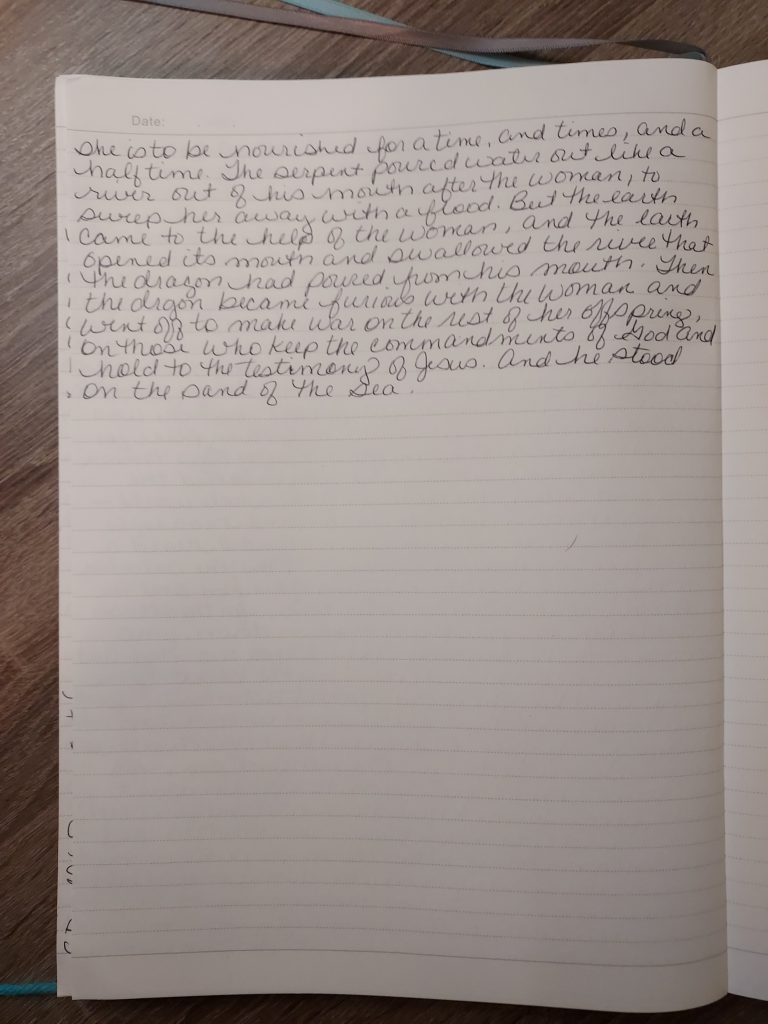 Date:
She is to be nourished for a time, and times, and a
half time. The serpent poured water out like a
river out of his mouth after the woman, to
sweep her away with a flood. But the earth
came to the help of the woman, and the earth
opened its mouth and swallowed the river that
the dragon had poured from his mouth. Then
the drgon became furious with the woman and
went off to make war on the rest of her offspring,
on those who keep the commandments of God and
hold to the testimony of Jesus. And he stood
on the sand of the sea.